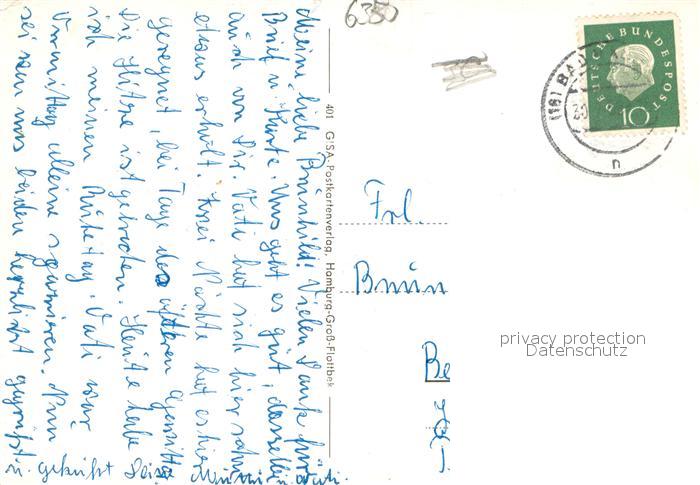 Meine liebe Brünhild! Vielen Dank für
Brief u. Karte. Uns geht es gut, dasselbe
auch von Dir. Vati hat sich hier schon
etwas erholt. Zwei Nächte hat es hier
geregnet, bei Tage des öfteren Gewitter
Die Hitze ist gebrochen. Heute habe
ich meinen Ruhetag. Vati war
Vormittag alleine spazieren. Nun
sei von uns beiden herzlichst gegrüßt
u. geküßt Deine Mutti u. Vati.
401 GISA-Postkartenverlag, Hamburg-Groß-Flottbek
6350
DEUTSCHE BUNDESPOST
10
(16) BAD
30
n
Frl.
Brün
Be
privacy protection
Datenschutz